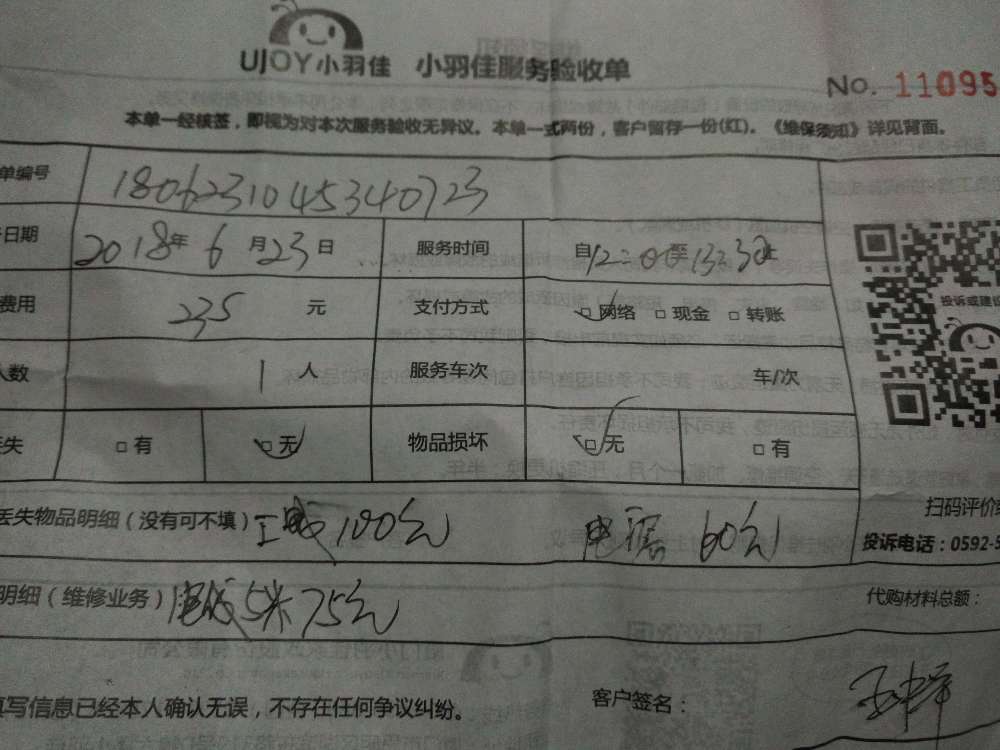 UJOY小羽佳 小羽佳服务验收单
No. 11095
本单一经核签，即视为对本次服务验收无异议。本单一式两份，客户留存一份(红)。《维保须知》详见背面。
单编号 1806231045340723
日期 2018年6月23日 服务时间 自12:00至13:30止
费用 235元 支付方式 □网络 □现金 □转账
投诉或建
人数 1人 服务车次 车/次
丢失 □有 □无 物品损坏 □无 □有
丢失物品明细（没有可不填） 100元 60元
扫码评价
投诉电话：0592-5
明细（维修业务） 5米75元
代购材料总额：
填写信息已经本人确认无误，不存在任何争议纠纷。
客户签名：